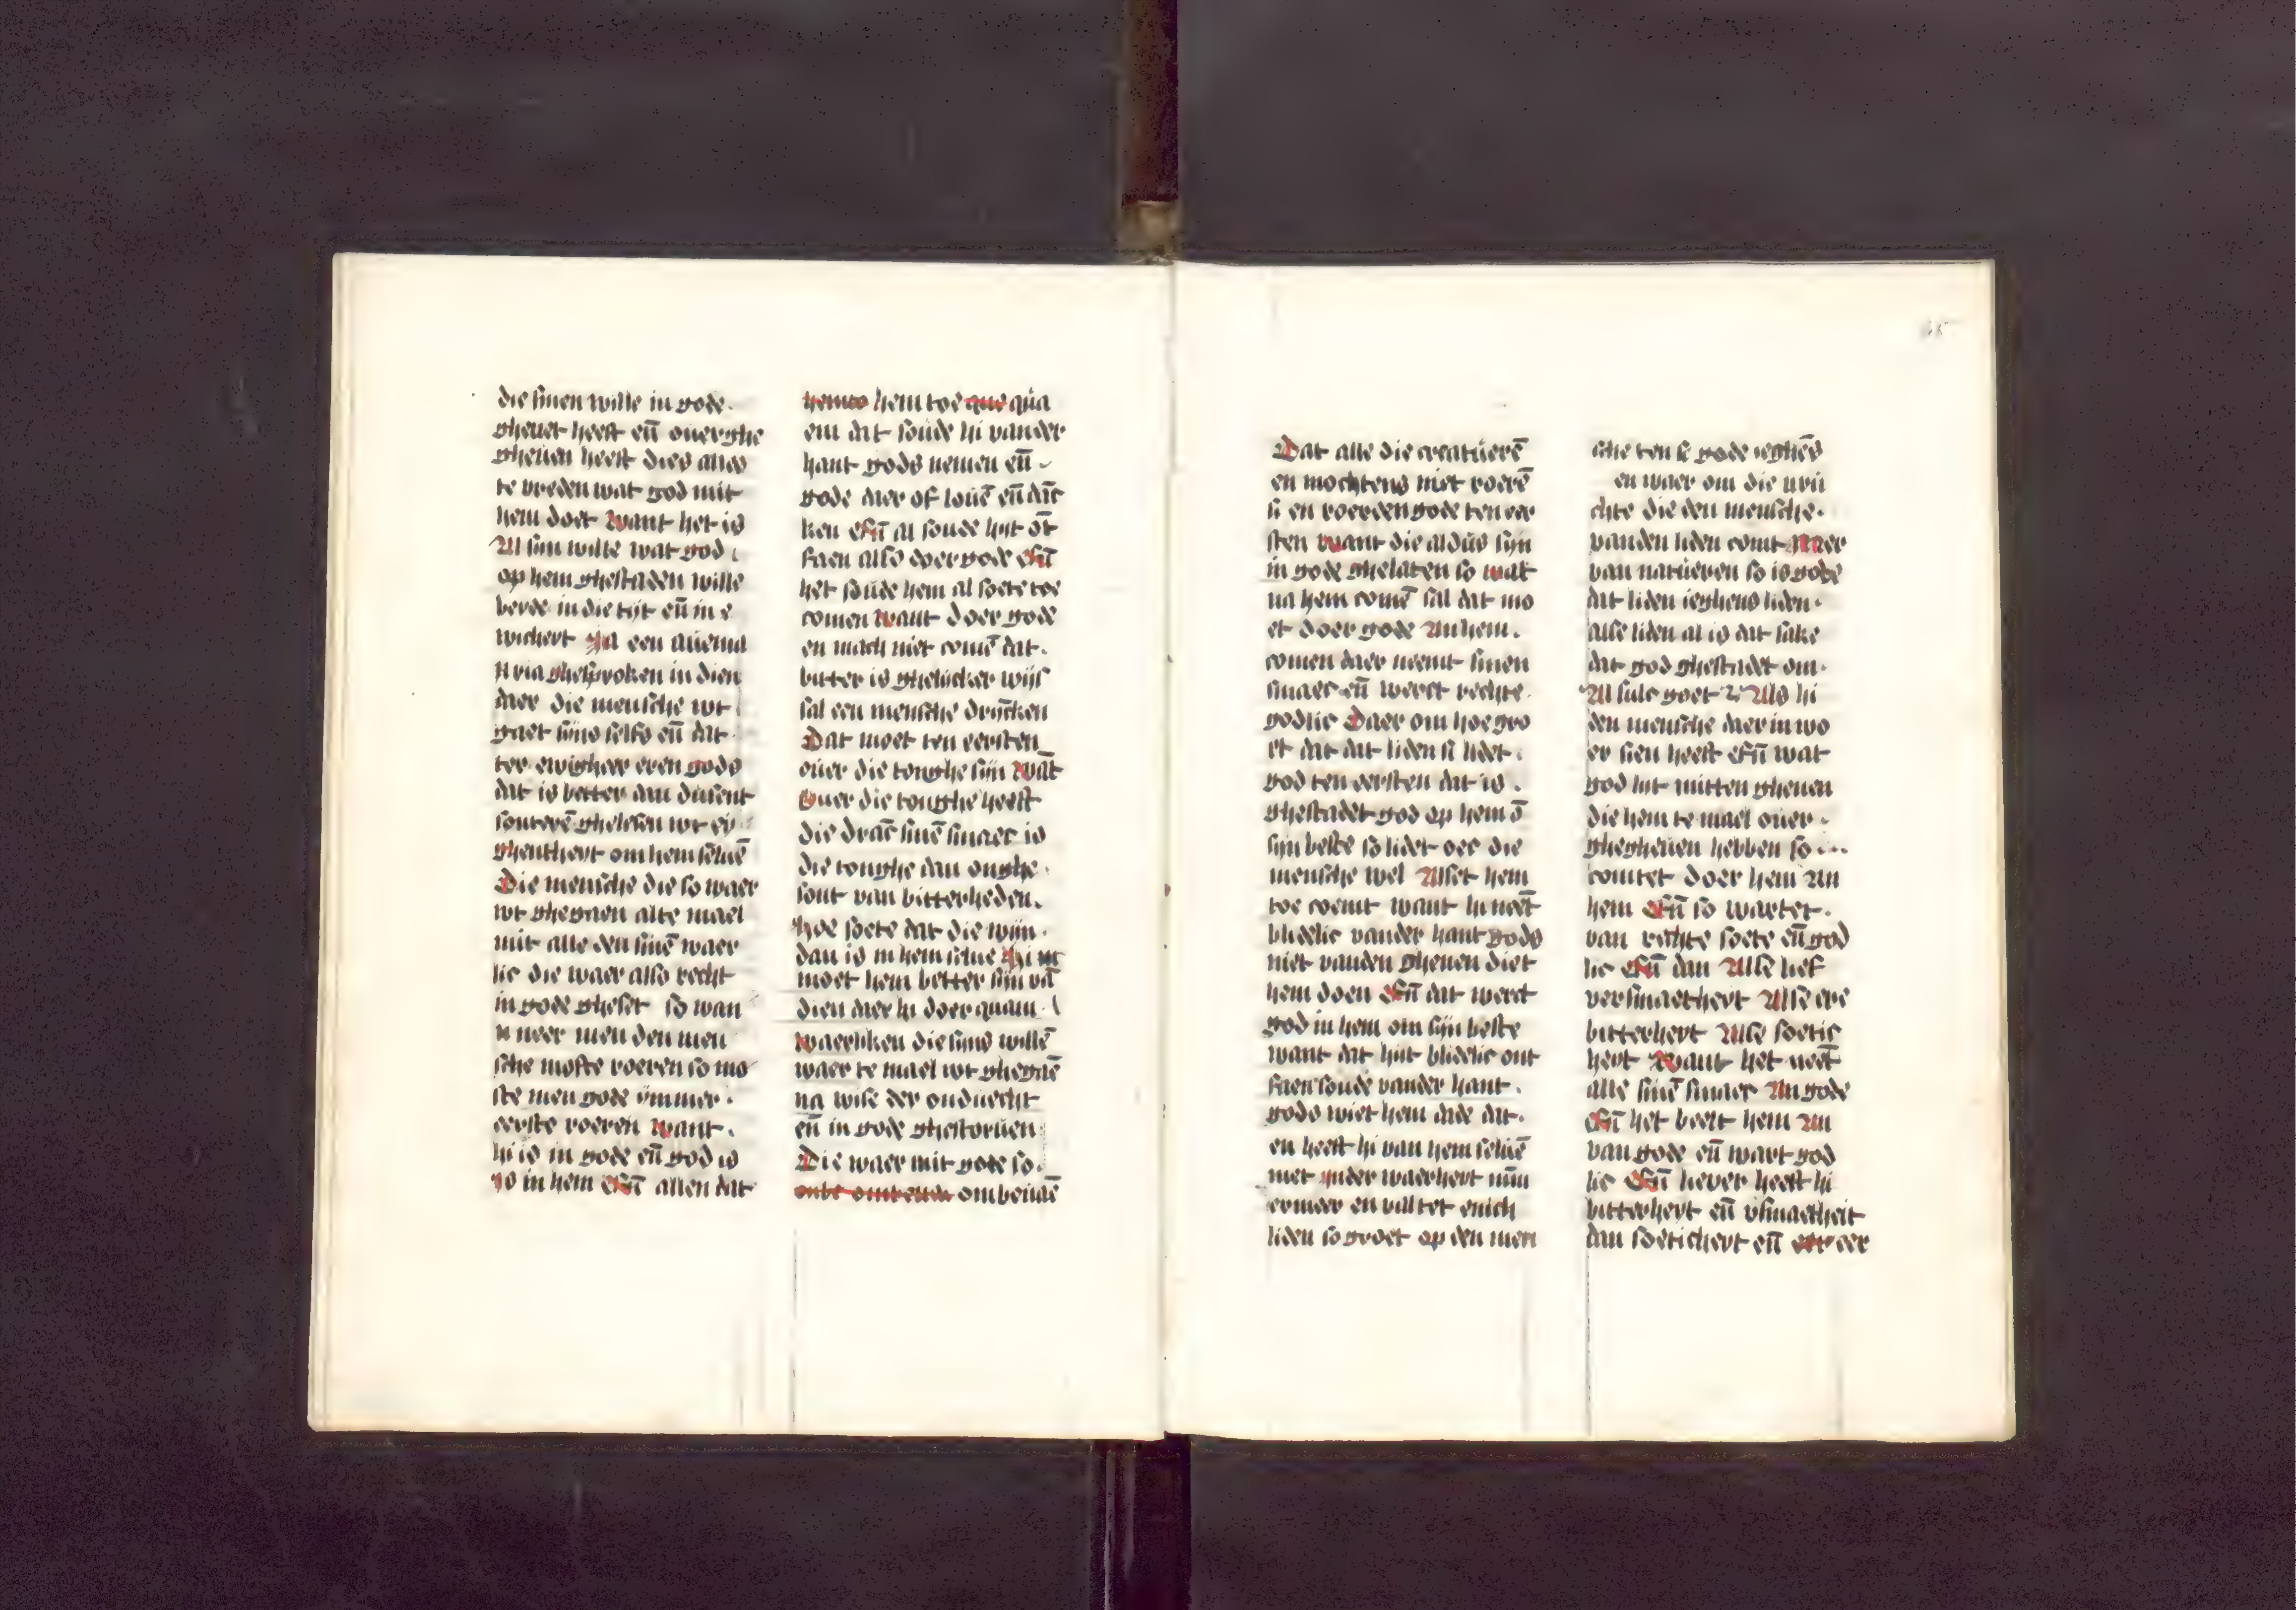 die sinen wille in gode.
gheuet heeft en̄ ouerghe
gheuen heeft dies alles
te vreden wat god mit
hem doet want het is
Al sijn wille wat god
op hem ghestaden wille
beyde in die tijt en̄ in e
wicheyt Ja een auema
ria ghesproken in dien
daer die mensche wt
gaet sijns selfs en̄ dat
ter ewigher eren gods
dat is beter dan dusent
souterē ghelesen wt ey
ghentheyt om hem seluē
Die mensche die so waer
wt ghegaen alte mael
mit alle den sinē waer
lic die waer also recht
in gode gheset so wan
neer men den men
sche moste roeren so mo
ste men gode ymmer.
eerste roeren want.
hi is in gode en̄ god is
in hem En̄ allen dat
hem toe qua
em dat soude hi vander
hant gods nemen en̄
gode daer of louē en̄ dāc
ken En̄ al soude hijt ōt
faen also doer gode En̄
het soude hem al soete toe
comen want doer gode
en mach niet comē dat.
bitter is ghelicker wijs
sal een mensche drincken
Dat moet ten eersten
ouer die tonghe sijn wāt
Ouer die tonghe heeft
die dranc sinē smaec is
die tonghe dan onghe
sont van bitterheden.
hoe soete dat die wijn.
dan is in hem selue hi
moet hem better sijn vā
dien daer hi doer quam.
waerliken die sijns willē
waer te mael wt ghegaē
na wise der onduecht
en̄ in gode ghestoruen
Die waer mit gode so.
ombeuāē
Dat alle die creatuerē
en mochtens niet roerē
si en roerden gode ten eer
sten want die aldus sijn
in gode ghelaten so wat
na hem comē sal dat mo
et doer gode An hem.
comen daer neemt sinen
smaec en̄ wert rechte
godlic Daer om hoe gro
et dat dat liden si lidet.
god ten eersten dat is.
ghestadet god op hem ō
sijn beste so lidet oec die
mensche wel Alset hem
toe coemt want hi neēt
blidelic vander hant gods
niet vanden ghenen diet
hem doen En̄ dat wert
god in hem om sijn beste
want dat hijt blidelic ont
faen soude vander hant.
gods wiet hem dade dat.
en heeft hi van hem seluē
niet inder waerheyt nūm
ermeer en valtet enich
liden so groet op den men
sche ten se gode ieghēs
en waer om die vru
chte die den mensche.
vanden liden comt Mer
van natueren so is gode
dat liden ieghens liden.
alse liden al is dat sake
dat god ghestadet om.
Al sulc goet Als hi
den mensche daer in vo
er sien heeft En̄ wat
god lijt mitten ghenen
die hem te mael ouer
ghegheuen hebben so
comtet doer hem An
hem En̄ so wartet.
van rechte soete en̄ god
lic En̄ dan Alse lief
versmaetheyt Alse ere
bitterheyt Alse soetic
heyt want het neēt
alle sinē smaec An gode
En̄ het beelt hem An
van gode en̄ wart god
lic En̄ liever heeft hi
bitterheyt en̄ vsmaetheit
dan soeticheyt en̄ eer